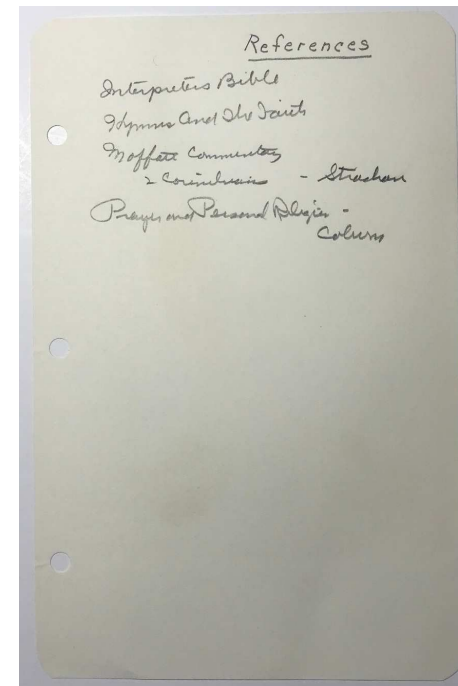 References
Interpreters Bible
Hymns And The Faith
Moffatt Commentary
2 Corinthians - Strachan
Prayer and Personal Religion -
Coburn